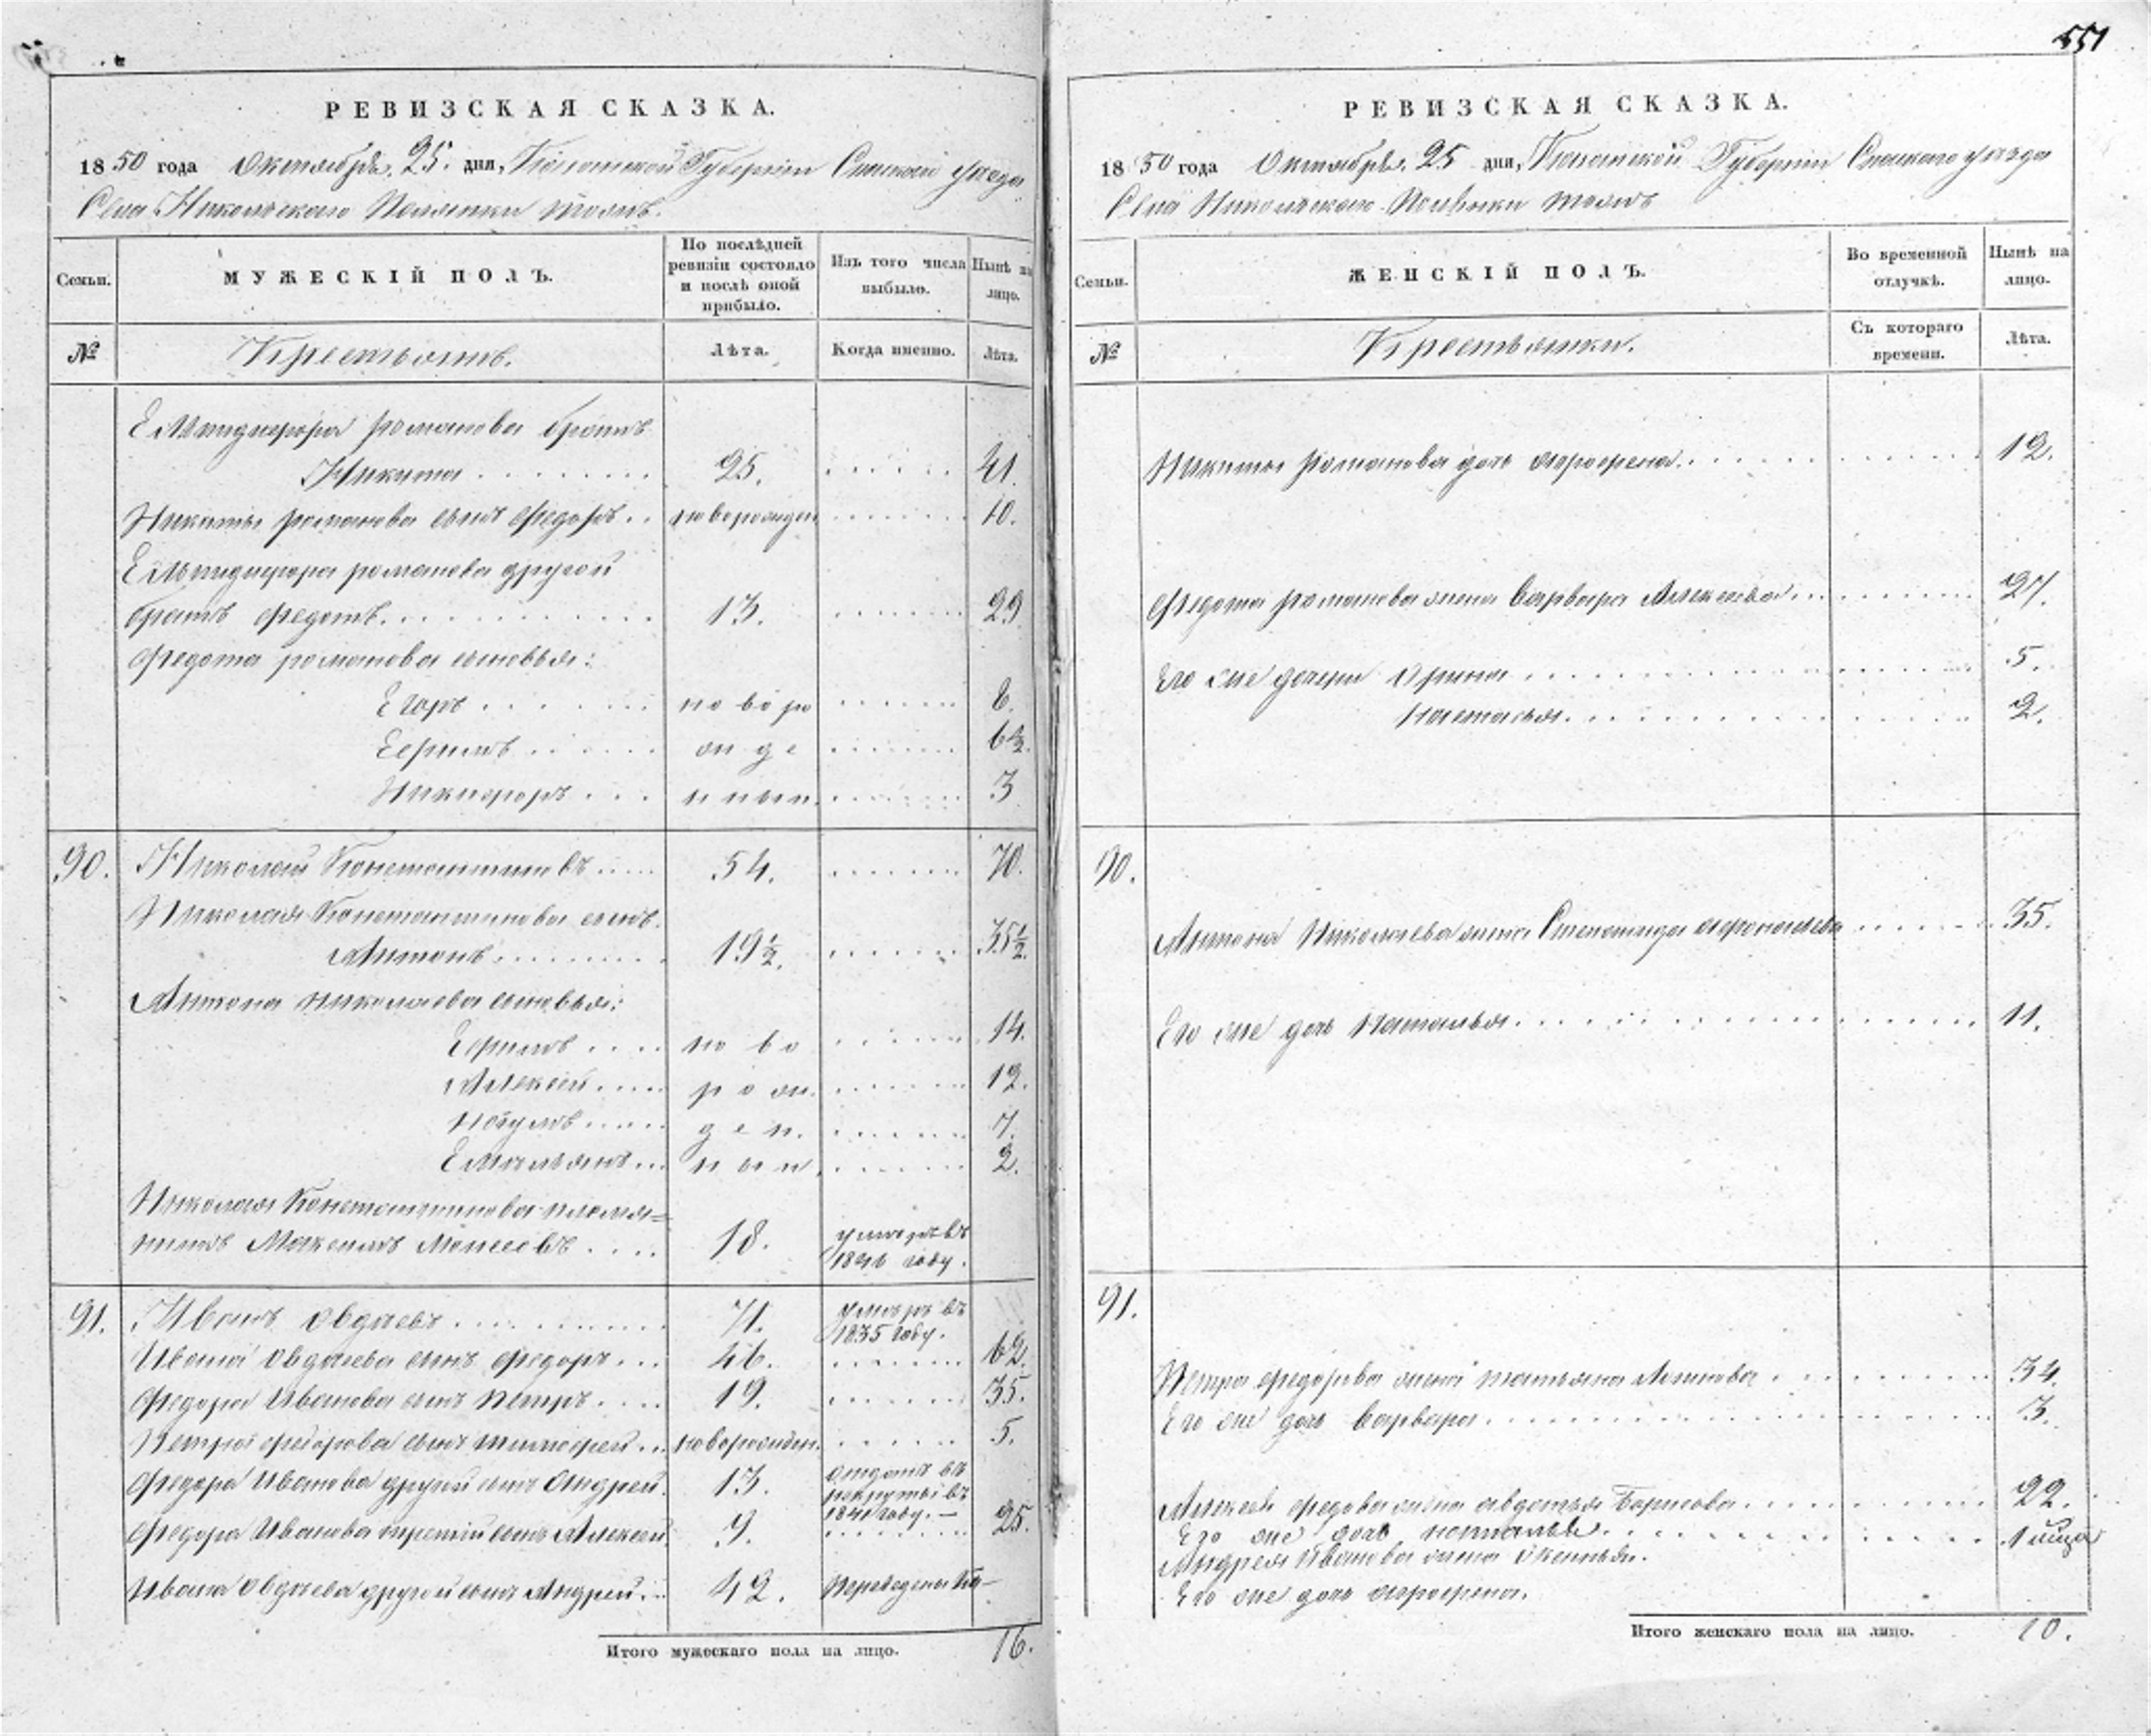 551
РЕВИЗСКАЯ СКАЗКА.
1850 года Октября 25. дня, Казанской Губернии Спаскаго уезда
Села Никольскаго Полянки тожъ.
Семьи.
МУЖЕСКІЙ ПОЛЪ.
По послѣдней ревизіи состояло и послѣ оной прибыло.
Изъ того числа выбыло.
Нынѣ на лицо.
№ Крестьянъ. Лѣта. Когда именно. Лѣта.
романова братъ
Никита 25. 41.
Никиты романова сынъ Федоръ новорожден 10.
романова другой
братъ Федотъ. 13. 29
Федота романова сыновья:
Егоръ новоро 8.
Ефимъ жде 6½.
Никифоръ нныи. 3
90. Николай Константиновъ 54. 70.
Николая Константинова сынъ
Антонъ 19½. 35½.
Антона Николаева сыновья:
Ефимъ ново 14.
Алексей рож. 12.
Наумъ ден. 7.
Емельянъ ныи. 2.
Николая Константинова племян=
никъ Максимъ Моисеевъ 18. умеръ въ
1846 году.
91. Иванъ Овдеевъ 71. умеръ въ
1835 году.
Ивана Овдеева сынъ Федоръ 46. 62.
Федора Иванова сынъ Петръ 19. 35.
Петра Федорова сынъ Тимофей новорожден. 5.
Федора Иванова другой сынъ Андрей. 13. отданъ въ
рекруты въ
1841 году.—
Федора Иванова третій сынъ Алексей 9. 25.
Ивана Овдеева другой сынъ Андрей. 42. Переведены
Итого мужескаго пола на лицо. 16.
РЕВИЗСКАЯ СКАЗКА.
1850 года Октября 25 дня, Казанской Губернии Спаскаго уезда
Села Никольскаго Полянки тожъ
Семьи.
ЖЕНСКІЙ ПОЛЪ.
Во временной отлучкѣ.
Нынѣ на лицо.
№ Крестьянки. Съ котораго времени. Лѣта.
Никиты Романова дочь Афросрена 12.
Федота романова жена Варвара Алексеева 27.
Его же дочери Орина 5.
Настасья. 2.
90.
Антона Николаева жена Степанида Афонасьева 35.
Его же дочь Наталья 11.
91.
Петра Федорова жена Татьяна Антипова 34.
Его же дочь Варвара 3.
Алексея Федорова жена Авдотья Борисова 22.
Его же дочь Наталья 1
Андрея Иванова жена Оксинья.
Его же дочь Афросрена.
Итого женскаго пола на лицо. 10.